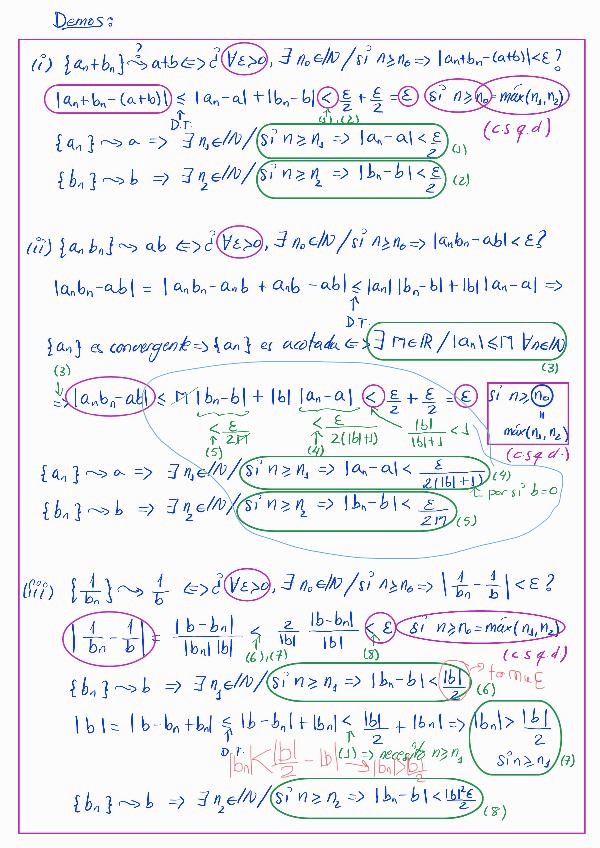 Demos:
(i) {aₙ+bₙ} ⇝? a+b ⇔ ¿∀ε>0, ∃ n₀∈ℕ / si n≥n₀ ⇒ |aₙ+bₙ-(a+b)|<ε?
|aₙ+bₙ-(a+b)| ≤ |aₙ-a|+|bₙ-b| < ε/2 + ε/2 = ε si n≥n₀=máx(n₁,n₂)
D.T. (1),(2) (c.s.q.d)
{aₙ} ⇝ a ⇒ ∃ n₁∈ℕ / si n≥n₁ ⇒ |aₙ-a|<ε/2 (1)
{bₙ} ⇝ b ⇒ ∃ n₂∈ℕ / si n≥n₂ ⇒ |bₙ-b|<ε/2 (2)
(ii) {aₙbₙ} ⇝ ab ⇔ ¿∀ε>0, ∃ n₀∈ℕ / si n≥n₀ ⇒ |aₙbₙ-ab|<ε?
|aₙbₙ-ab| = |aₙbₙ-aₙb + aₙb -ab| ≤ |aₙ| |bₙ-b|+|b| |aₙ-a| ⇒
D.T.
{aₙ} es convergente ⇒ {aₙ} es acotada ⇔ ∃ M∈ℝ / |aₙ|≤M ∀n∈ℕ
(3) (3)
⇒ |aₙbₙ-ab| ≤ M |bₙ-b| + |b| |aₙ-a| < ε/2 + ε/2 = ε si n≥n₀
< ε/2M < ε/2(|b|+1) |b|/|b|+1 <1 = máx(n₁,n₂)
(5) (4) (c.s.q.d.)
{aₙ} ⇝ a ⇒ ∃ n₁∈ℕ / si n≥n₁ ⇒ |aₙ-a| < ε/2(|b|+1) (4)
por si b=0
{bₙ} ⇝ b ⇒ ∃ n₂∈ℕ / si n≥n₂ ⇒ |bₙ-b| < ε/2M (5)
(iii) {1/bₙ} ⇝ 1/b ⇔ ¿∀ε>0, ∃ n₀∈ℕ / si n≥n₀ ⇒ |1/bₙ - 1/b| < ε?
|1/bₙ - 1/b| = |b-bₙ|/|bₙ||b| ≤ 2/|b| |b-bₙ|/|b| < ε si n≥n₀=máx(n₁,n₂)
(6),(7) (8) (c.s.q.d)
{bₙ} ⇝ b ⇒ ∃ n₁∈ℕ / si n≥n₁ ⇒ |bₙ-b|<|b|/2 (6) → tomo ε
|b| = |b-bₙ+bₙ| ≤ |b-bₙ|+|bₙ| < |b|/2 + |bₙ| ⇒ |bₙ| > |b|/2
D.T. (1) ⇒ necesito n≥n₁ si n≥n₁ (7)
|bₙ|<|b|/2 - |b| → |bₙ|>|b|/2
{bₙ} ⇝ b ⇒ ∃ n₂∈ℕ / si n≥n₂ ⇒ |bₙ-b|<|b|²ε/2 (8)